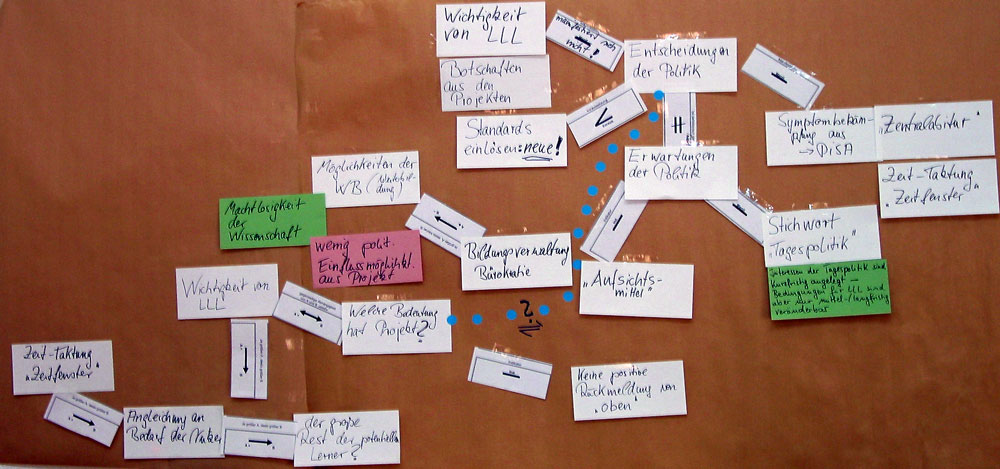 Wichtigkeit
von LLL
manifestiert sich
nicht!
Entscheidungen
der Politik
Botschaften
aus den
Projekten
Standards
einlösen: neue!
<
=
Symptombekäm-
pfung aus
→ PISA
"Zentralabitur"
Erwartungen
der Politik
Zeit-Taktung
"Zeitfenster"
Möglichkeiten der
WB (Weiterbil-
dung)
Machtlosigkeit
der
Wissenschaft
wenig polit.
Einflussmöglichk.
aus Projekt
Bildungsverwaltung
Bürokratie
Stichwort
"Tagespolitik"
Interessen der Tagespolitik sind
kurzfristig angelegt –
Bedingungen für LLL sind
aber nur mittel-/langfristig
veränderbar
"Aufsichts-
mittel"
Wichtigkeit von
LLL
Welche Bedeutung
hat Projekt?
?
Zeit-Taktung
"Zeitfenster"
Keine positive
Rückmeldung von
"oben"
Angleichung an
Bedarf der Nutzer
der große
Rest der potentiellen
Lerner?